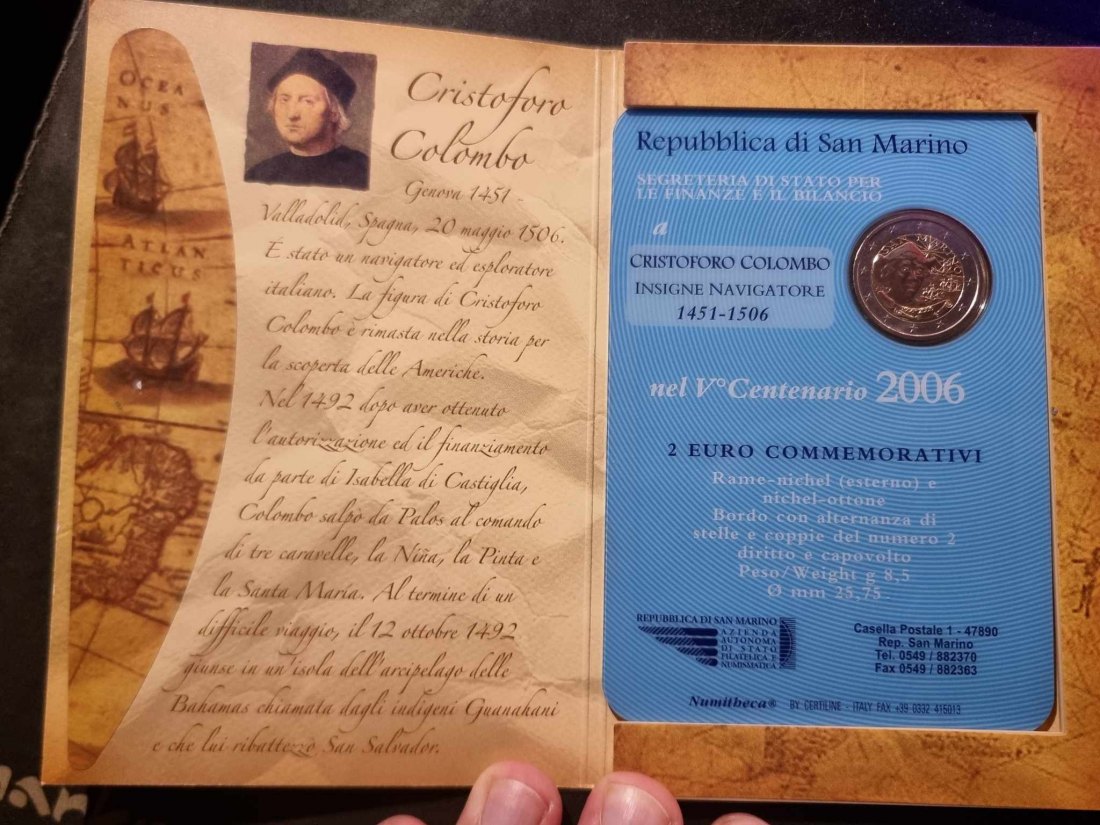 OCEA
NUS
ATLAN
TICUS
Cristoforo
Colombo
Genova 1451 -
Valladolid, Spagna, 20 maggio 1506.
É stato un navigatore ed esploratore
italiano. La figura di Cristoforo
Colombo è rimasta nella storia per
la scoperta delle Americhe.
Nel 1492 dopo aver ottenuto
l'autorizzazione ed il finanziamento
da parte di Isabella di Castiglia,
Colombo salpò da Palos al comando
di tre caravelle, la Niña, la Pinta e
la Santa María. Al termine di un
difficile viaggio, il 12 ottobre 1492
giunse in un'isola dell'arcipelago delle
Bahamas chiamata dagli indigeni Guanahani
e che lui ribattezzo San Salvador.
Repubblica di San Marino
SEGRETERIA DI STATO PER
LE FINANZE E IL BILANCIO
a
CRISTOFORO COLOMBO
INSIGNE NAVIGATORE
1451-1506
SAN MARINO
nel V° Centenario 2006
2 EURO COMMEMORATIVI
Rame-nichel (esterno) e
nichel-ottone
Bordo con alternanza di
stelle e coppie del numero 2
diritto e capovolto
Peso/Weight g 8,5
Ø mm 25,75
REPUBBLICA DI SAN MARINO
AZIENDA
AUTONOMA
DI STATO
FILATELICA E
NUMISMATICA
Casella Postale 1 - 47890
Rep. San Marino
Tel. 0549 / 882370
Fax 0549 / 882363
Numitheca® BY CERTILINE - ITALY FAX +39 0332 415013